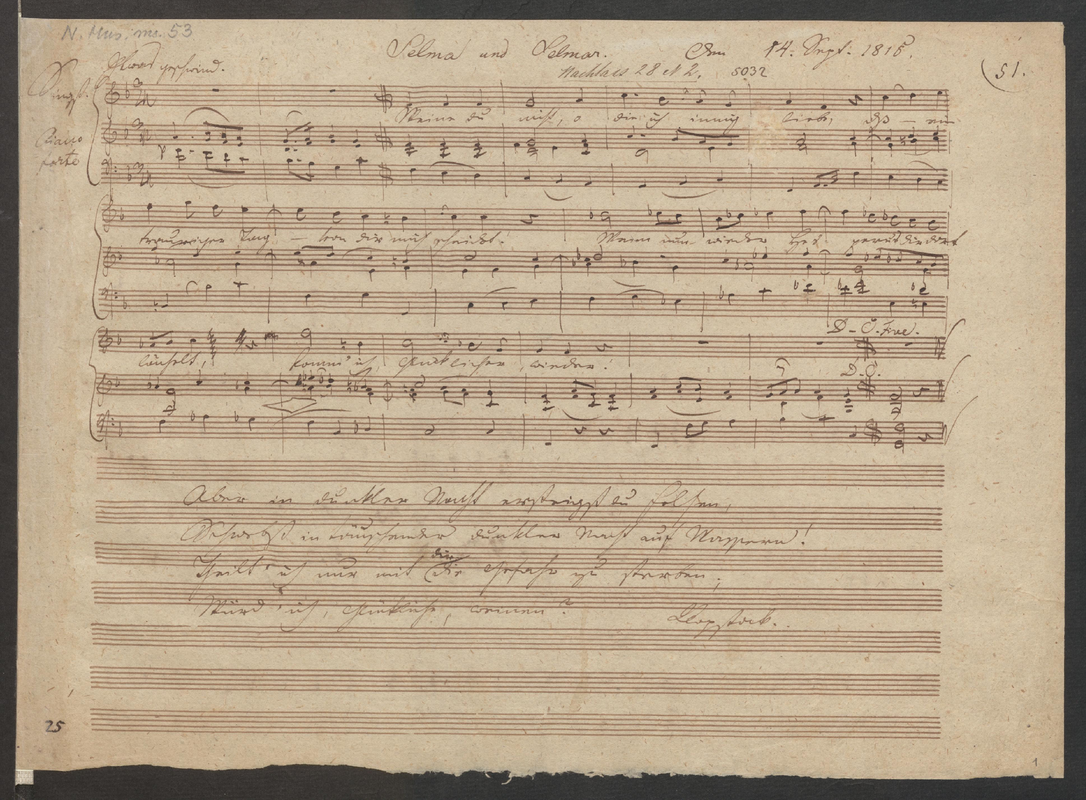 N. Mus. ms. 53
Selma und Selmar. Den 14. Sept. 1815
Nachlass 28 N 2. 5032
(51.
Etwas geschwind.
Singst.
Piano
forte
Weine du nicht, o die ich innig liebe, daß ein
trauriger Tag von dir mich scheidet! Wenn nun wieder Hesperus dir dort
D. C. Fine.
lächelt, komm' ich Glücklicher wieder!
D. C.
Aber in dunkler Nacht ersteigst du Felsen,
Schwebst in täuschender dunkler Nacht auf Wassern!
Theilt' ich nur mit dir die Gefahr zu sterben,
Würd' ich, Glückliche, weinen?
Klopstock.
25
1